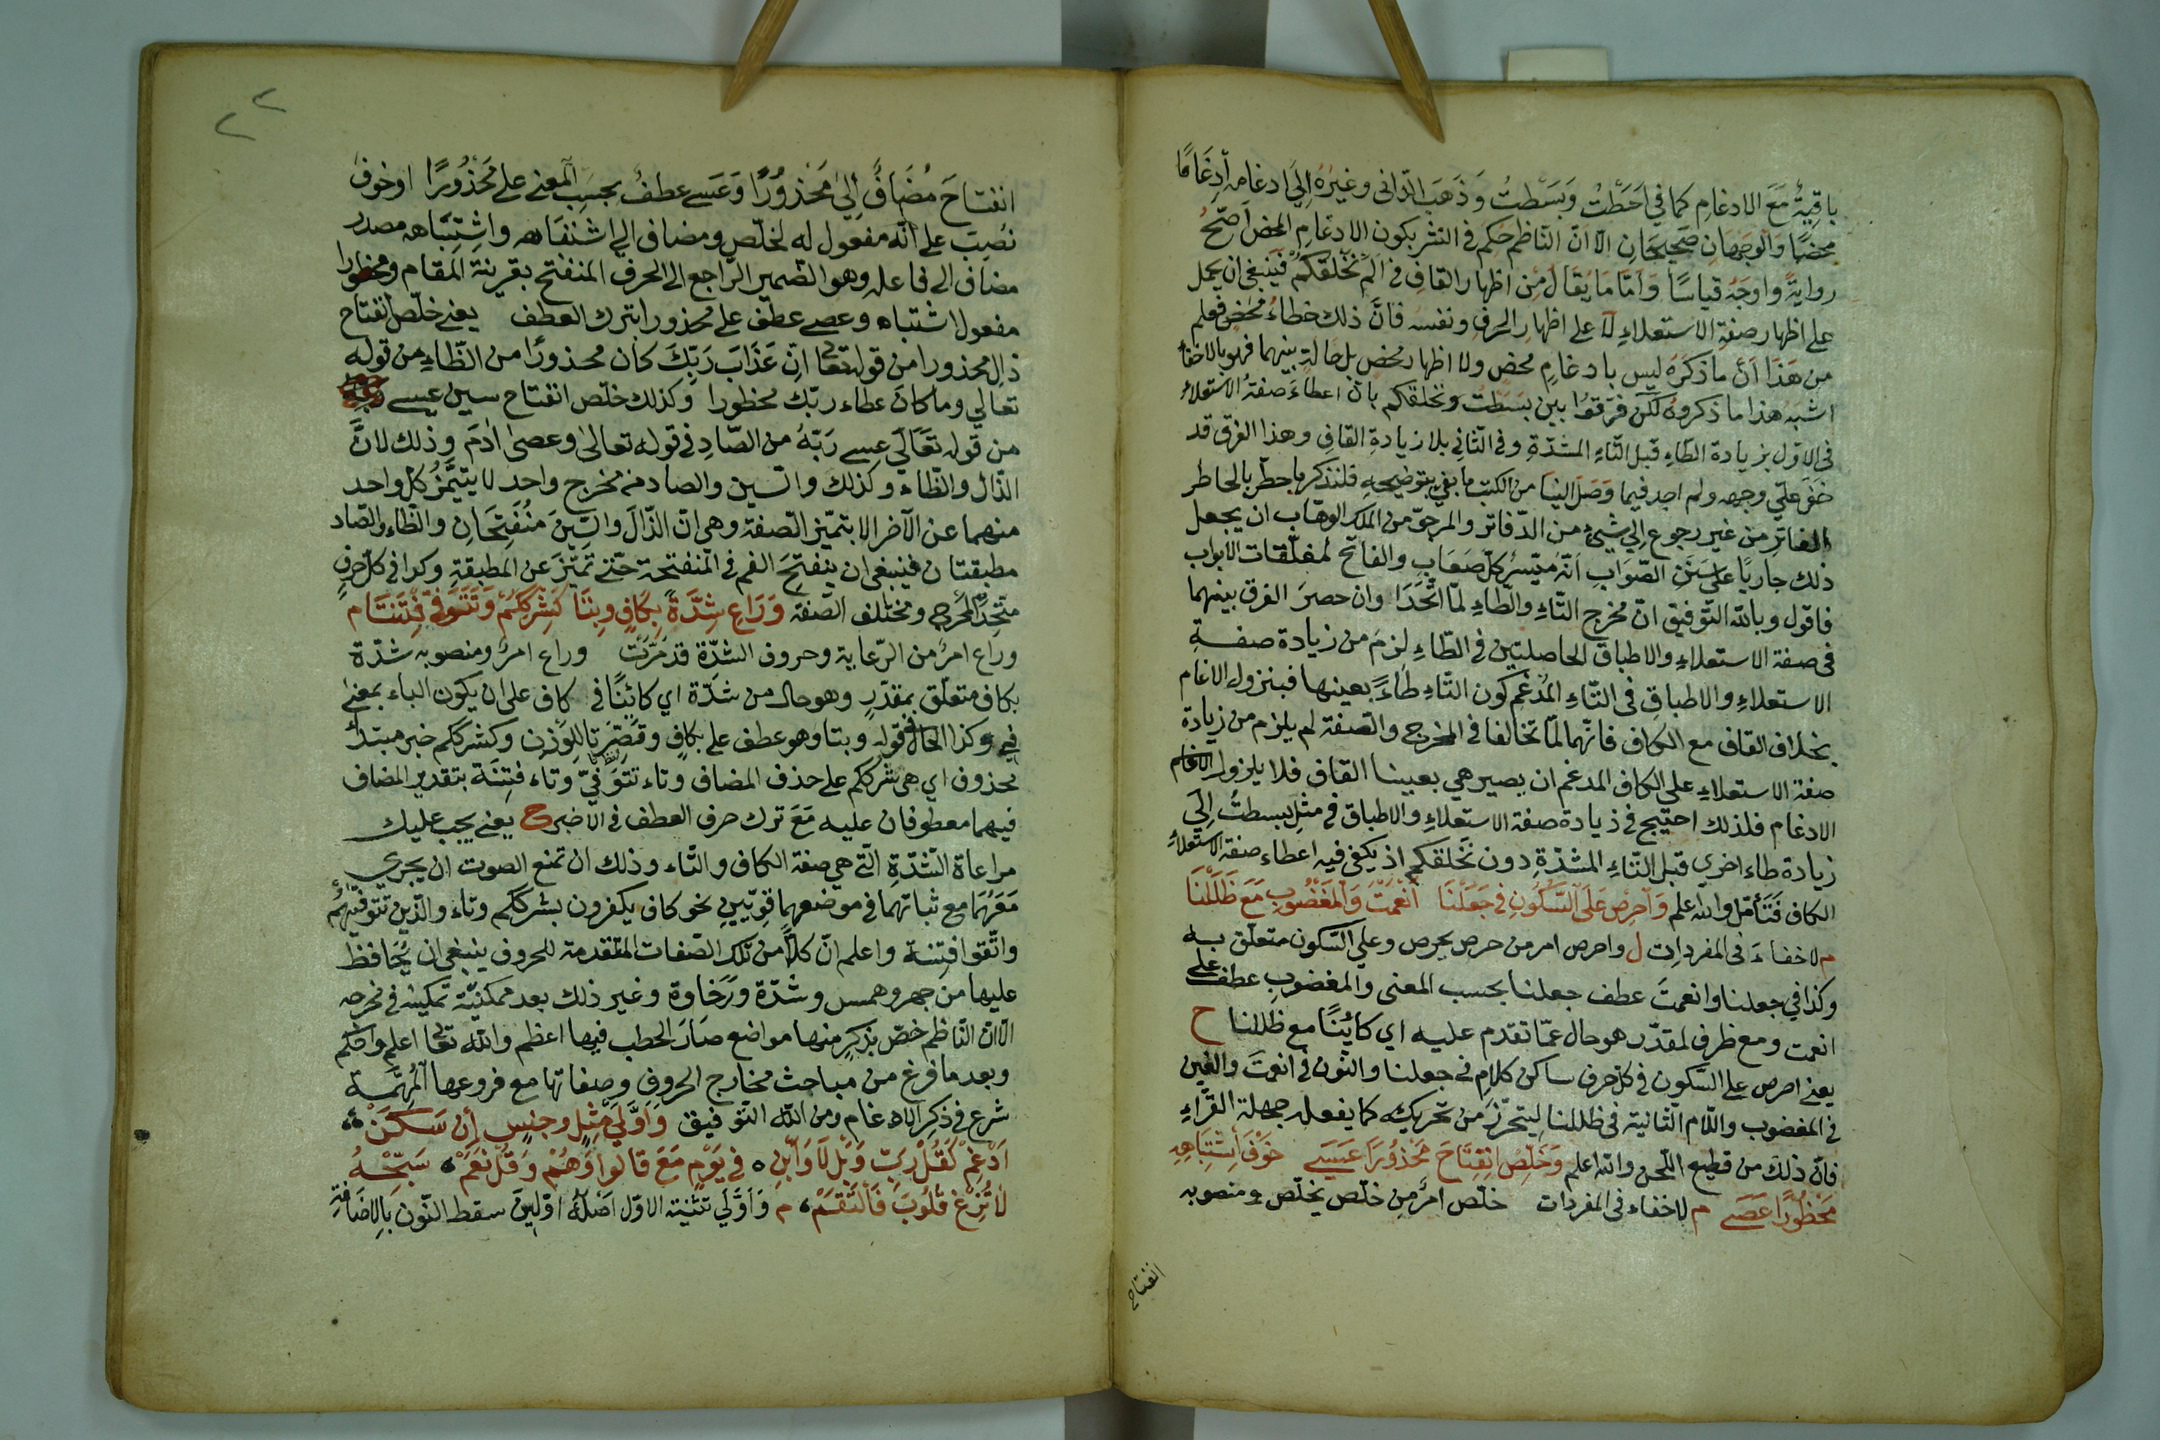 باقِيةٌ مَعَ الادغامِ كما في اَحَطْتُ وَبَسَطْتَ وَذَهَبَ الدّانى وغيرُهُ اِلَى ادغامهِ اِدغامًا
محضًا وَالوجهَانِ صَحيحَانِ الّا اَنّ النّاظم حَكم فى النّشر بكون الادغامِ المحضِ اَصَحُّ
روايةً وَاوجَهُ قياسًا وَاَمّا مَا يُقالُ مِن اظهار القافِ فى اَلَمْ نَخْلُقْكُمْ فينبغى ان يحمل
على اظهار صفة الاستعلاءِ لا على اظهار الحرف ونفسه فانّ ذلك خطاءٌ محض فعلم
من هَذا اَنّ ما ذكرَه ليس بادغامٍ محض ولا اظهار محض بل حالةٌ بينهما فهو بالاخفاء
اشبه هذا ما ذكروهُ لكن فرّقوا بين بَسَطْتَ ونخلقكم بانّ اعطاءَ صفةُ الاستعلاء
فى الاوّل بزيادة الطّاءِ قبل التّاءِ المشدّةِ وفى الثّانِي بلا زيادةِ القافِ وهذا الفرق قد
خَفى علىّ وجهه ولم اجد فيما وَصَلَ الينَا من الكتب ما يفى بتوضيحهِ فلنذكر ما خطر بالخاطر
الفاتر من غير رجوع الى شيئ من الدّفاتر والمرجوّ من الملك الوهّاب ان يجعل
ذلك جاريًا على سَنَنِ الصّوَابِ انّهُ ميّسرُ كلّ صعَابٍ والفاتح لمغلّقات الابواب
فاقول وبالله التّوفيق انّ مخرج التّاءِ والطّاءِ لمّا اتّحَدَا وان حصرَ الفرق بينهما
فى صفة الاستعلاءِ والاطباق الحاصلتين فى الطّاءِ لزمَ من زيادة صفةِ
الاستعلاءِ والاطباقِ فى التّاءِ المُدْغَم كون التّاءِ طاءً بعينها فبنزولِ الادغام
بخلاف القاف مع الكاف فانّهما لمّا تخالفا فى المخرج والصّفة لم يلزم من زيادة
صفة الاستعلاءِ على الكاف المدغم ان يصير هى بعينا القاف فلا يلزولِ الادغام
الادغام فلذلك احتيج فى زيادة صفة الاستعلاءِ والاطباق فى مثل بسطتُ اِلَى
زيادة طاء اخرى قبل التّاءِ المشدّةِ دون نَخلقكم اذ يكفى فيه اعطاء صفة الاستعلاءِ
الكاف فَتَأمّل والله اعلم وَاَحرِص عَلَى السُّكُونِ فِى جَعَلْنَا اَنْعَمْتَ وَالْمَغْضُوبِ مَعَ ظَلَلْنَا
م لا خفاءَ فى المفردات ل واحرص امر من حرص يحرص وعلى السّكون متعلّق به
وكذا فى جعلنا وانعمتَ عطف جعلنا بحسب المعنى والمغضوبِ عطف على
انعمت ومع ظرف لمقدّر هو حال عمّا تقدم عليه اى كائنًا مع ظللنا ح
يعنى احرص على السّكون فى كلّ حرف ساكن كلامِ فى جعلنا والنّون فى انعمتَ والغين
فى المغضوب واللّام الثّانية فى ظللنا ليتحرّز من تحريكه كما يفعله جهلة القرّاءِ
فانّ ذلك من قطيع اللّحن والله اعلم وَخَلِّصِ اِنْفِتَاحَ مَحْذُورًا عَسَى خَوْفَ اشْتِبَاهِهِ
مَحْظُورًا عَصَى م لا خفاء فى المفردات خلّص امرٌ مِن خلّص يخلّص ومنصوبه
انفتاح
انفتاحَ مُضَافٌ اِلىَ مَحْذورًا وَعَسى عطفٌ بحسبِ المعنى على مَحْذُورًا اوخوفَ
نصِبَ على انّه مفعول له لخلّص ومضاف الى اشتباهه واشتباهه مصدر
مضاف الى فاعله وهو الضمير الرّاجع الى الحرف المنفتح بقرينة المقام ومحظورا
مفعول اشتباه وعصى عطف على محذورا بترك العطف يعنى خلّص انفتاح
ذال محذورا من قوله تعالى اِنّ عَذَابَ رَبّكَ كان محذورًا من الظّاءِ من قوله
تعالى وما كانَ عطاء ربّك محظورا وكذلك خلّص انفتاح سين عيسى
من قوله تَعَالى عسى رَبّهُ من الصّادِ فى قوله تعالى وعصىٰ اٰدَمَ وذلك لانَّ
الذّال والظّاء وكذلك والسّين والصاد من مخرج واحد لا يتيَّمزُ كلّ واحد
منهما عن الآخر الا بتميّز الصّفة وهى انّ الذّالَ والسّينَ مُنْفَتِحَانِ والظّاء والصّاد
مطبقتان فينبغى ان ينفتحَ الفم فى المنفتحة حتّى تَمتزَ عن المطبقةِ وكذا فى كلّ حرفٍ
متّحِدِ المخرج ومختلف الصّفة وَرَاعِ شِدَّةً بِكَافٍ وبِتَا كَشِرْكِكُمْ وَتَتَوَفَّى فِتْنَتَا م
وراع امرٌ من الرّعاية وحروف الشدّة قد مَرّتْ وراع امرٌ ومنصوبه شدّة
بكاف متعلّق بمقدّرٍ وهو حال من شدّة اى كائنًا فى كاف على ان يكون الباء بمعنى
فى وكذا الحال فى قوله وبتا وهو عطف على بكافٍ وقُصِّرَ تا للوزن وكشرككم خبر مبتدأ
محذوف اى هى شرككم على حذف المضاف وتاء تتوفىّ وتاء فِتنَة بتقدير المضاف
فيهما معطوفان عليه مَعَ ترك حرف العطف فى الاخير ح يعنى يجب عليك
مراعاة الشّدّةِ الّتى هى صفة الكاف والتّاء وذلك ان تمنع الصوت ان يجرى
مَعَهُمَا مع ثباتهما فى موضعهما قوِيّينِ نحو كاف يكفرون بشرككم وتاء والّذين تتوفّيهُم
واتّقوا فتنة واعلم انّ كلاًّ من تلك الصّفات المتقدمة للحروف ينبغى ان يُحَافظ
عليها من جهر وهمس وشدّة ورَخاوة وغير ذلك بعد تمكينه فى مخرجه
الا انّ النّاظم خصّ بذكرٍ منها مواضع صَارَ الخطب فيها اعظم والله تعالى اعلم واحكم
وبعد ما فرغ من مباحث مخارج الحروف وصفاتها مع فروعها المُهِمَّة
شرع فى ذكر الادغام ومن الله التّوفيق وَاَوَّلَىْ مِثْلٍ وجنسٍ اِنْ سَكَنْ
اَدْغِمْ كَقُلْ رَبِّ وَبَلْ لَا وَاَبِنْ ٥ فى يَوْمِ مَعَ قَالُوا وَهُمْ وَقُلْ نَعَمْ سَبِّحْهُ
لَا تُزِغْ قُلُوبَ فَالْتَقَمْ م وَاَوَّلَى تثنية الاوّل اَصلُهُ اوّلينَ سقط النّون بالاضافةِ